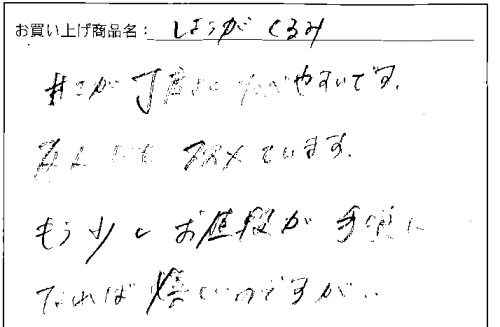 お買い上げ商品名: しょうが くるみ
甘さが丁度よく たべやすいです。
友人にも ススメています。
もう少し お値段が 手頃に
なれば 嬉しいのですが..